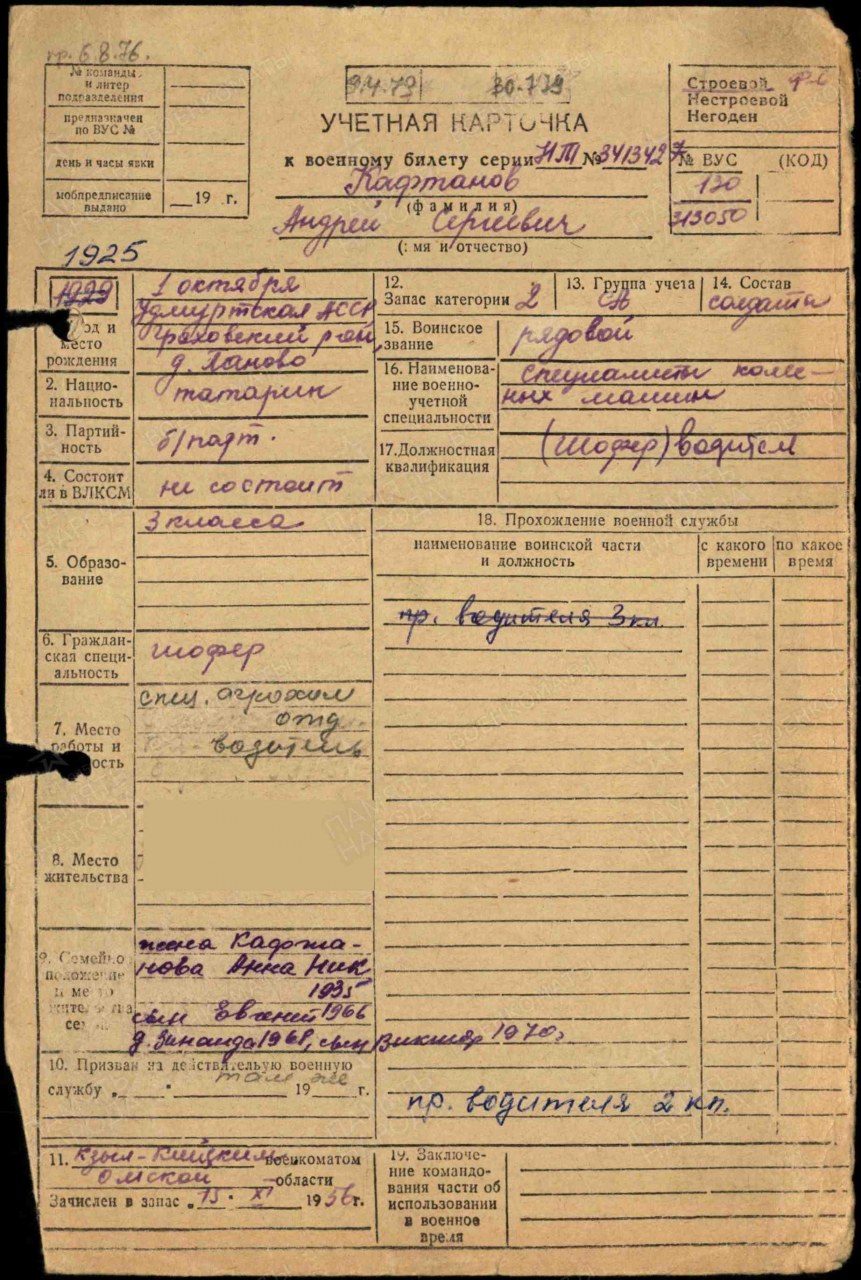 пр. 6.8.76.
№ команды и литер подразделения
предназначен по ВУС №
день и часы явки
мобпредписание выдано
19 г.
9.4.79 30.7.79
УЧЕТНАЯ КАРТОЧКА
к военному билету серии НТ № 3413427
Кафтанов
(фамилия)
Андрей Сергеевич
(имя и отчество)
Строевой
Нестроевой
Негоден
№ ВУС (КОД)
130
313050
1925
1929
1 октября
Удмуртская АССР
Граховский рай
д. Паново
год и место рождения
2. Национальность
татарин
3. Партийность
б/парт.
4. Состоит ли в ВЛКСМ
не состоит
5. Образование
3 класса
6. Гражданская специальность
шофер
7. Место работы и
спец. агрохим
отд.
водитель
8. Место жительства
9. Семейно положение и место жительства
жена Кафта-
нова Анна Ник
1935
сын Евгений 1966
д. Зинаида 1968, сын Виктор 1970г
10. Призван на действительную военную
там же
службу „ " 19 г.
11. военкоматом
Омской области
Зачислен в запас „15. XI 1956г.
12.
Запас категории 2
13. Группа учета
СА
14. Состав
солдаты
15. Воинское звание
рядовой
16. Наименование военно-учетной специальности
специалисты колес-
ных машин
17. Должностная квалификация
(шофер) водитель
18. Прохождение военной службы
наименование воинской части и должность
с какого времени
по какое время
пр. водителя 3 кл
пр. водителя 2 кл.
19. Заключение командования части об использовании в военное время